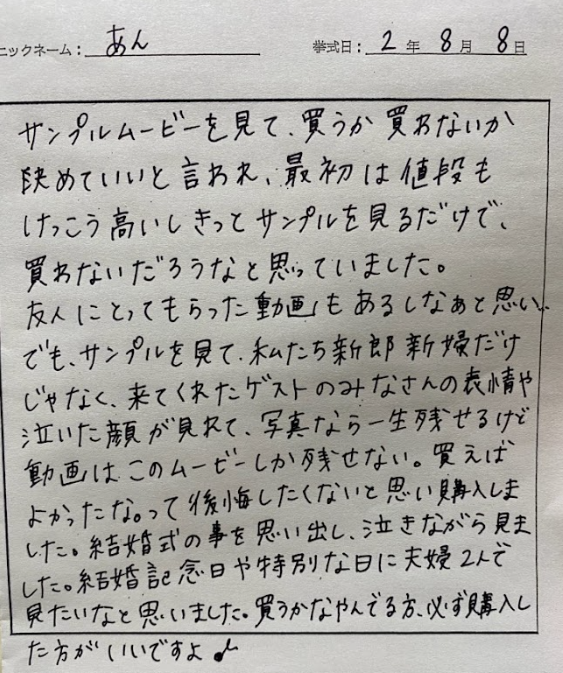 ニックネーム: あん 挙式日: 2 年 8 月 8 日
サンプルムービーを見て、買うか買わないか
決めていいと言われ、最初は値段も
けっこう高いしきっとサンプルを見るだけで、
買わないだろうなと思っていました。
友人にとってもらった動画もあるしなぁと思い、
でも、サンプルを見て、私たち新郎新婦だけ
じゃなく、来てくれたゲストのみなさんの表情や
泣いた顔が見れて、写真なら一生残せるけど
動画はこのムービーしか残せない。買えば
よかったな。って後悔したくないと思い購入しま
した。結婚式の事を思い出し、泣きながら見ま
した。結婚記念日や特別な日に夫婦2人で
見たいなと思いました。買うかなやんでる方、必ず購入し
た方がいいですよ♪